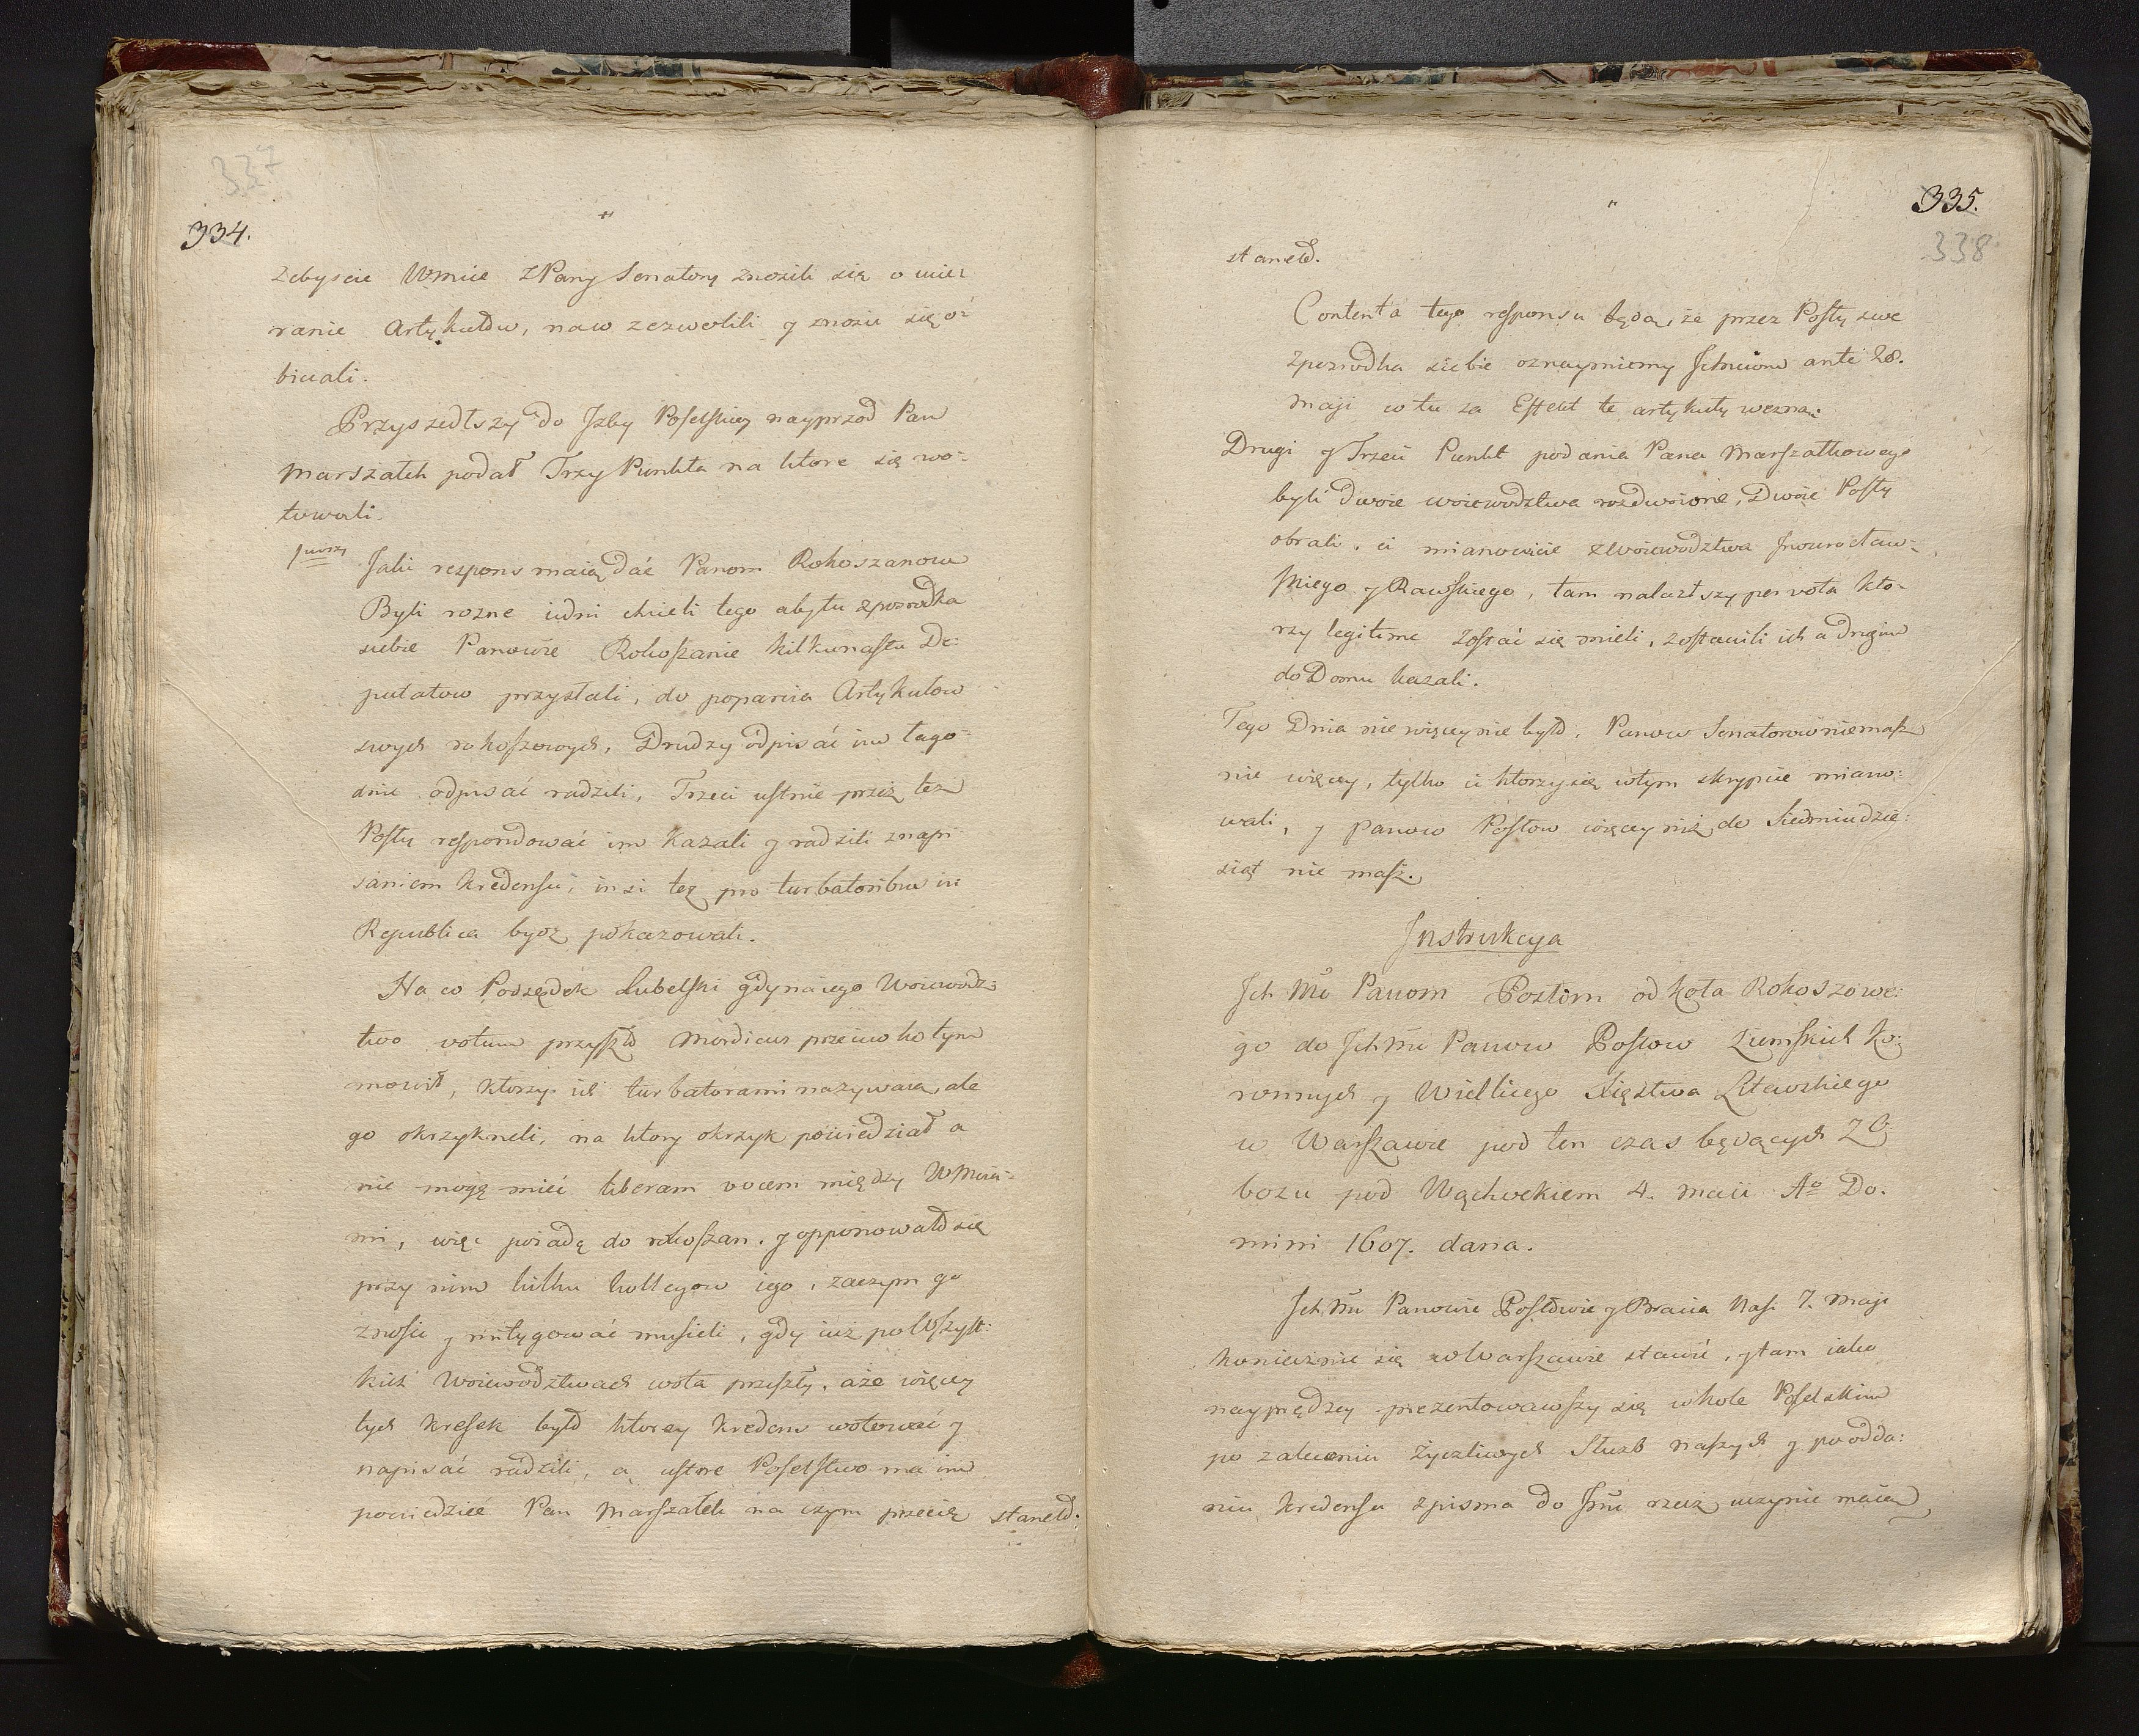 337
334.
zebyscie Wmcie z Pany Senatory znosili się o wie:
ranie Artykułów, naw zezwolili y znosić się o:
biecali.
Przyszedłszy do Jzby Poselskiey nayprzod Pan
Marszałek podał Trzy Punkta na ktore się wo:
towali.
1wszy Jaki respons maią dać Panom Rokoszanom
Byli rozne iedni chcieli tego aby tu zposrodka
siebie Panowie Rokoszanie kilkunastu De:
putatow przysłali, do poparcia Artykułow
swych rokoszowych, Drudzy odpisać im łago
dnie odpisać radzili, Trzeci ustnie przez tez
Posły respondować im kazali y radzili z napi
saniem kredensu, insi tę pro turbatoribus in
Republica bydz pokazowali.
Na co Podsędek Lubelski gdy na iego Woiewodz:
two votum przyszło mordicus przeciwko tym
mowił, ktorzy ich turbatorami nazywaią, ale
go okrzykneli, na ktory okrzyk powiedział a
nie mogę mieć liberam vocem między WMcia:
mi, więc poiadę do rokoszan. y opponowało się
przy nim kilku kollegow iego, zaczym go
znosić y mitygować musieli, gdy iuż po Wszyst:
kich Woiewodztwach wota przeszły, aże więcey
tych kresek było ktorzy kredens wotować y
napisać radzili, a ustne Poselstwo ma im
powiedziec Pan Marszałek na czym przecię staneło.
335.
338
staneło.
Contenta tego responsu będą, że przez Posły swe
zposrodka siebie oznaymiemy Jchmciom ante 28.
maji co tu za Effekt te artykuły wezmą.
Drugi y Trzeci Punkt podania Pana Marszałkowego
byli dwoie woiewodztwa rozdwoione, Dwoie Posły
obrali, ci mianowicie z Woiewodztwa Jnowrocław:
skiego y Rawskiego, tam nalazłszy per vota kto:
rzy legitime zostać się mieli, zostawili ich a drugim
do Domu kazali.
Tego Dnia nic więcy nie było, Panow Senatorow niemasz
nic więcey, tylko ci ktorzy się w tym skrypcie miano:
wali, y Panow Posłow więcey niż do Siedmiudzie:
siąt nie masz.
Jnstrukcya
Jch Mć Panom Posłom od Koła Rokoszowe:
go do Jch Mć Panow Posłow Ziemskich Ko:
ronnych y Wielkiego Xięstwa Litewskiego
w Warszawie pod ten czas będących Z O:
bozu pod Wąchockiem 4. Maii Aº Do.
mini 1607. dana.
Jch Mć Panowie Posłowie y Bracia Nasi 7. Maje
koniecznie się w Warszawie stawić, y tam iako
nayprędzey prezentowawszy się w kole Poselskim
po zaleceniu życzliwych Służb naszych y po odda:
niu kredensu z pisma do Jch Mć rzecz uczynić maią